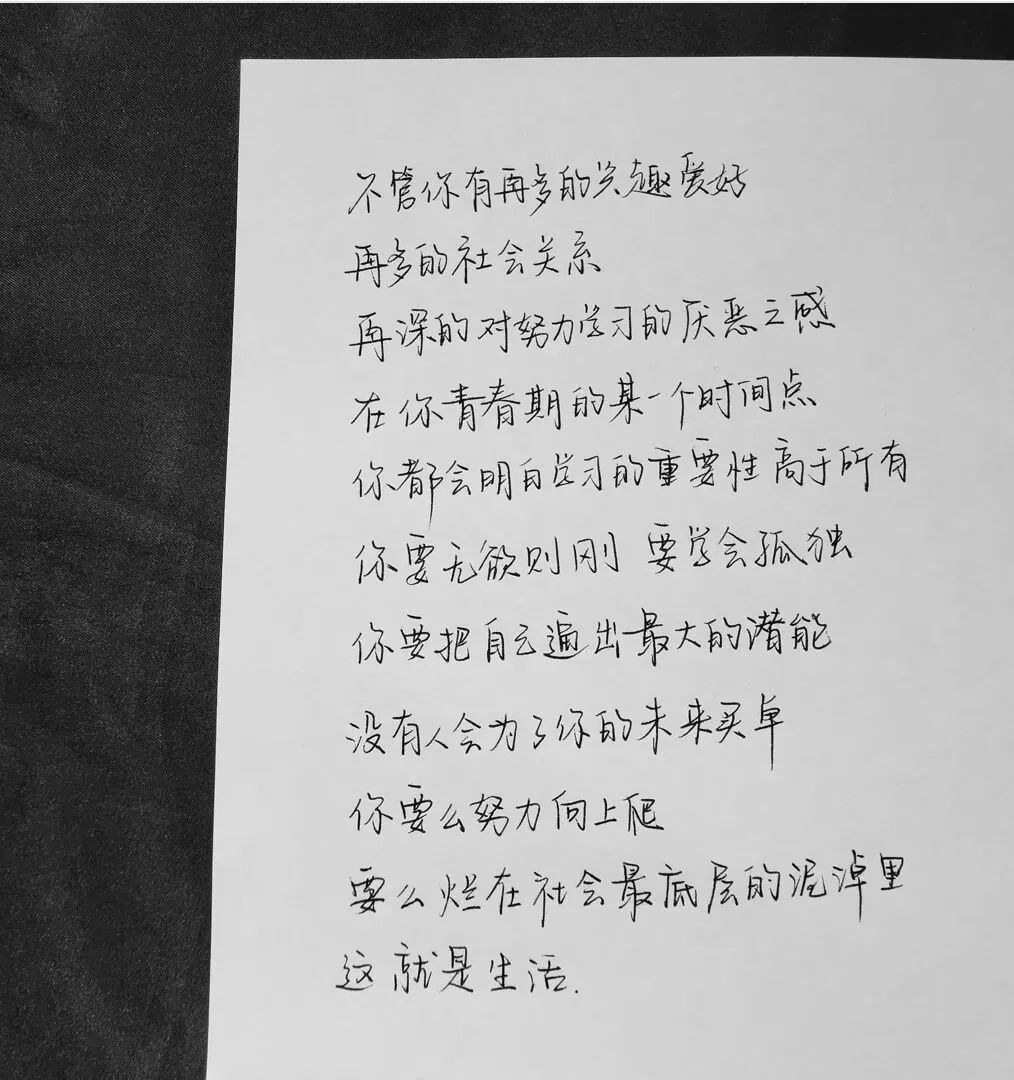 不管你有再多的兴趣爱好
再多的社会关系
再深的对努力学习的厌恶之感
在你青春期的某一个时间点
你都会明白学习的重要性高于所有
你要无欲则刚 要学会孤独
你要把自己逼出最大的潜能
没有人会为了你的未来买单
你要么努力向上爬
要么烂在社会最底层的泥淖里
这就是生活.